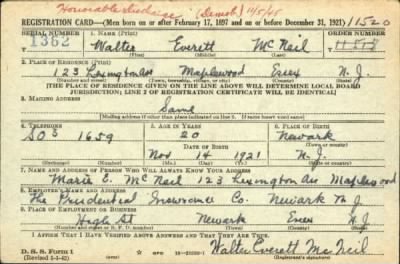 Honorable discharge (Demob) 11/5/45
REGISTRATION CARD—(Men born on or after February 17, 1897 and on or before December 31, 1921) 11520
SERIAL NUMBER 1. NAME (Print) ORDER NUMBER
1362 Walter Everett McNeil
(First) (Middle) (Last)
2. PLACE OF RESIDENCE (Print)
123 Lexington Ave Maplewood Essex N.J.
(Number and street) (Town, township, village, or city) (County) (State)
[THE PLACE OF RESIDENCE GIVEN ON THE LINE ABOVE WILL DETERMINE LOCAL BOARD
JURISDICTION; LINE 2 OF REGISTRATION CERTIFICATE WILL BE IDENTICAL]
3. MAILING ADDRESS
Same
(Mailing address if other than place indicated on line 2. If same insert word same)
4. TELEPHONE 5. AGE IN YEARS 6. PLACE OF BIRTH
SO 3 1659 20 Newark
DATE OF BIRTH (Town or county)
Nov 14 1921 N.J.
(Exchange) (Number) (Mo.) (Day) (Yr.) (State or country)
7. NAME AND ADDRESS OF PERSON WHO WILL ALWAYS KNOW YOUR ADDRESS
Marie E. McNeil 123 Lexington Ave Maplewood
8. EMPLOYER'S NAME AND ADDRESS
The Prudential Insurance Co. Newark N.J.
9. PLACE OF EMPLOYMENT OR BUSINESS
St Newark Essex N.J.
(Number and street or R. F. D. number) (Town) (County) (State)
I AFFIRM THAT I HAVE VERIFIED ABOVE ANSWERS AND THAT THEY ARE TRUE.
D. S. S. Form 1
(Revised 1-1-42)
Walter Everett McNeil